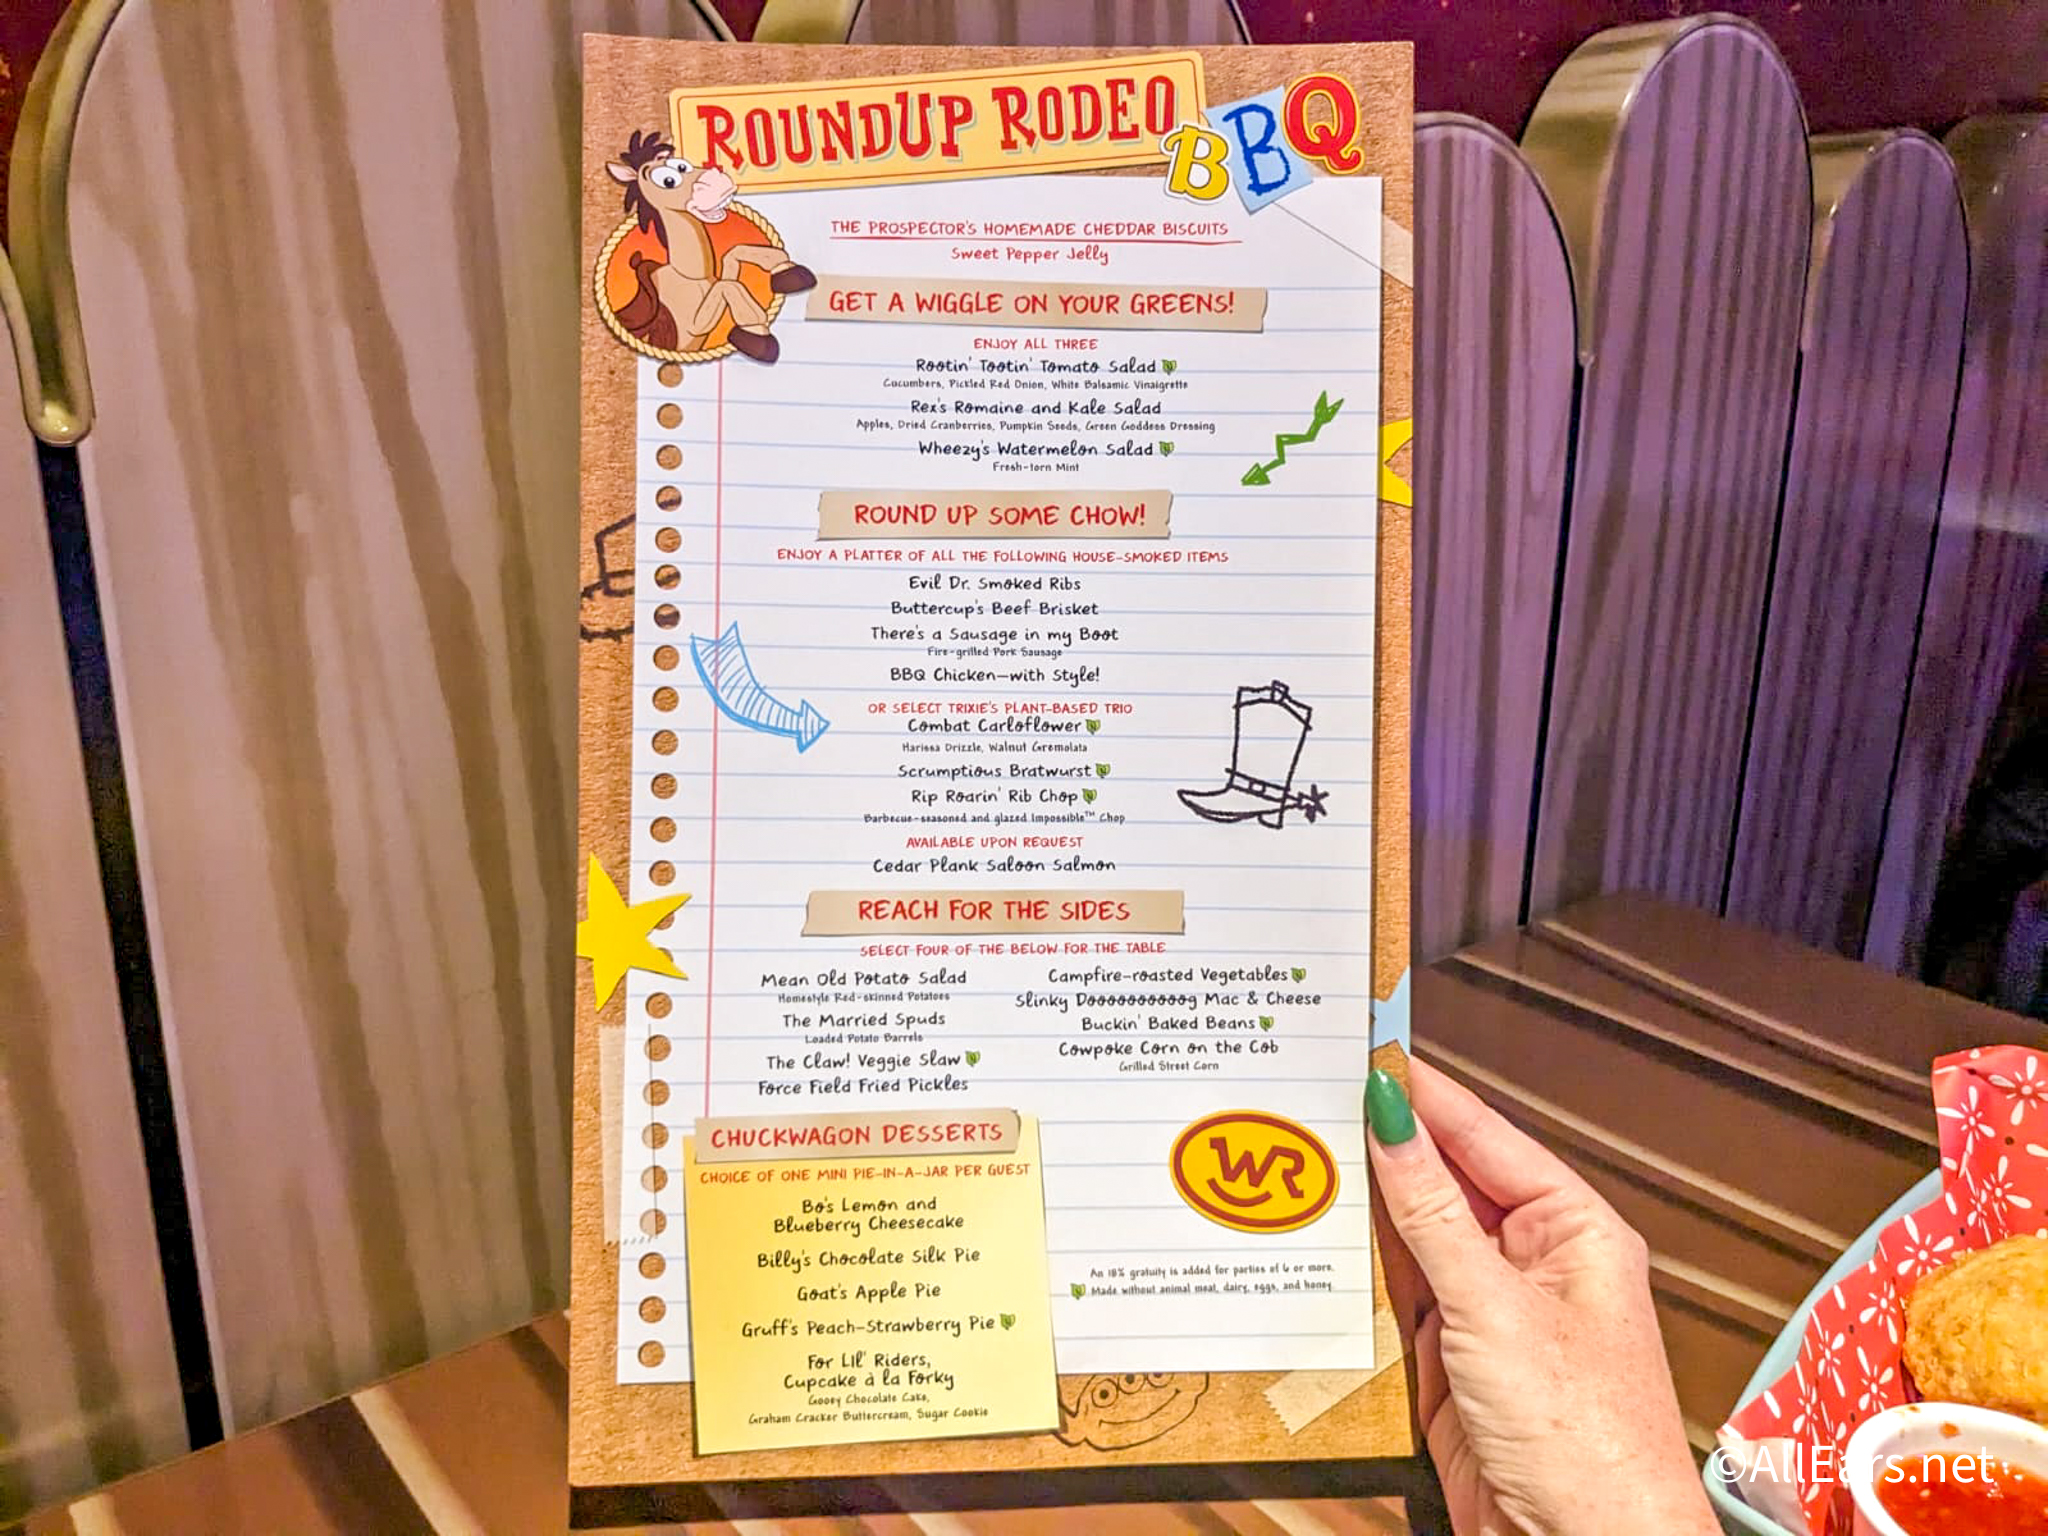 ROUNDUP RODEO BBQ
THE PROSPECTOR'S HOMEMADE CHEDDAR BISCUITS
Sweet Pepper Jelly
GET A WIGGLE ON YOUR GREENS!
ENJOY ALL THREE
Rootin' Tootin' Tomato Salad
Cucumbers, Pickled Red Onion, White Balsamic Vinaigrette
Rex's Romaine and Kale Salad
Apples, Dried Cranberries, Pumpkin Seeds, Green Goddess Dressing
Wheezy's Watermelon Salad
Fresh-torn Mint
ROUND UP SOME CHOW!
ENJOY A PLATTER OF ALL THE FOLLOWING HOUSE-SMOKED ITEMS
Evil Dr. Smoked Ribs
Buttercup's Beef Brisket
There's a Sausage in my Boot
Fire-grilled Pork Sausage
BBQ Chicken—with Style!
OR SELECT TRIXIE'S PLANT-BASED TRIO
Combat Carloflower
Harissa Drizzle, Walnut Gremolata
Scrumptious Bratwurst
Rip Roarin' Rib Chop
Barbecue-seasoned and glazed Impossible™ Chop
AVAILABLE UPON REQUEST
Cedar Plank Saloon Salmon
REACH FOR THE SIDES
SELECT FOUR OF THE BELOW FOR THE TABLE
Mean Old Potato Salad
Homestyle Red-skinned Potatoes
The Married Spuds
Loaded Potato Barrels
The Claw! Veggie Slaw
Force Field Fried Pickles
Campfire-roasted Vegetables
Slinky Doooooooooog Mac & Cheese
Buckin' Baked Beans
Cowpoke Corn on the Cob
Grilled Street Corn
CHUCKWAGON DESSERTS
CHOICE OF ONE MINI PIE-IN-A-JAR PER GUEST
Bo's Lemon and
Blueberry Cheesecake
Billy's Chocolate Silk Pie
Goat's Apple Pie
Gruff's Peach-Strawberry Pie
For Lil' Riders,
Cupcake à la Forky
Gooey Chocolate Cake,
Graham Cracker Buttercream, Sugar Cookie
WR
An 18% gratuity is added for parties of 6 or more.
Made without animal meat, dairy, eggs, and honey.
©AllEars.net